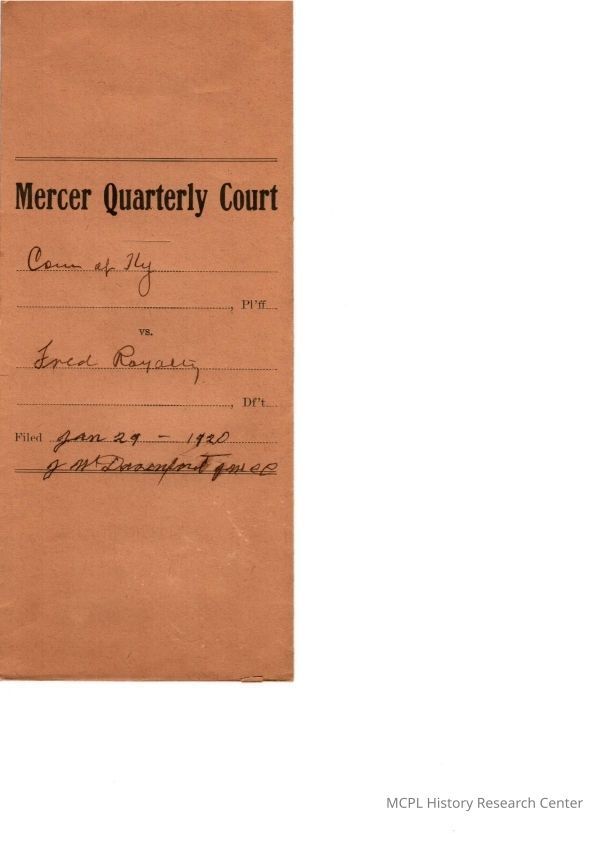 Mercer Quarterly Court
Com of Ky
, Pl'ff
vs.
Fred Royalty
, Df't.
Filed Jan 29 - 1920
J W Davenport
MCPL History Research Center